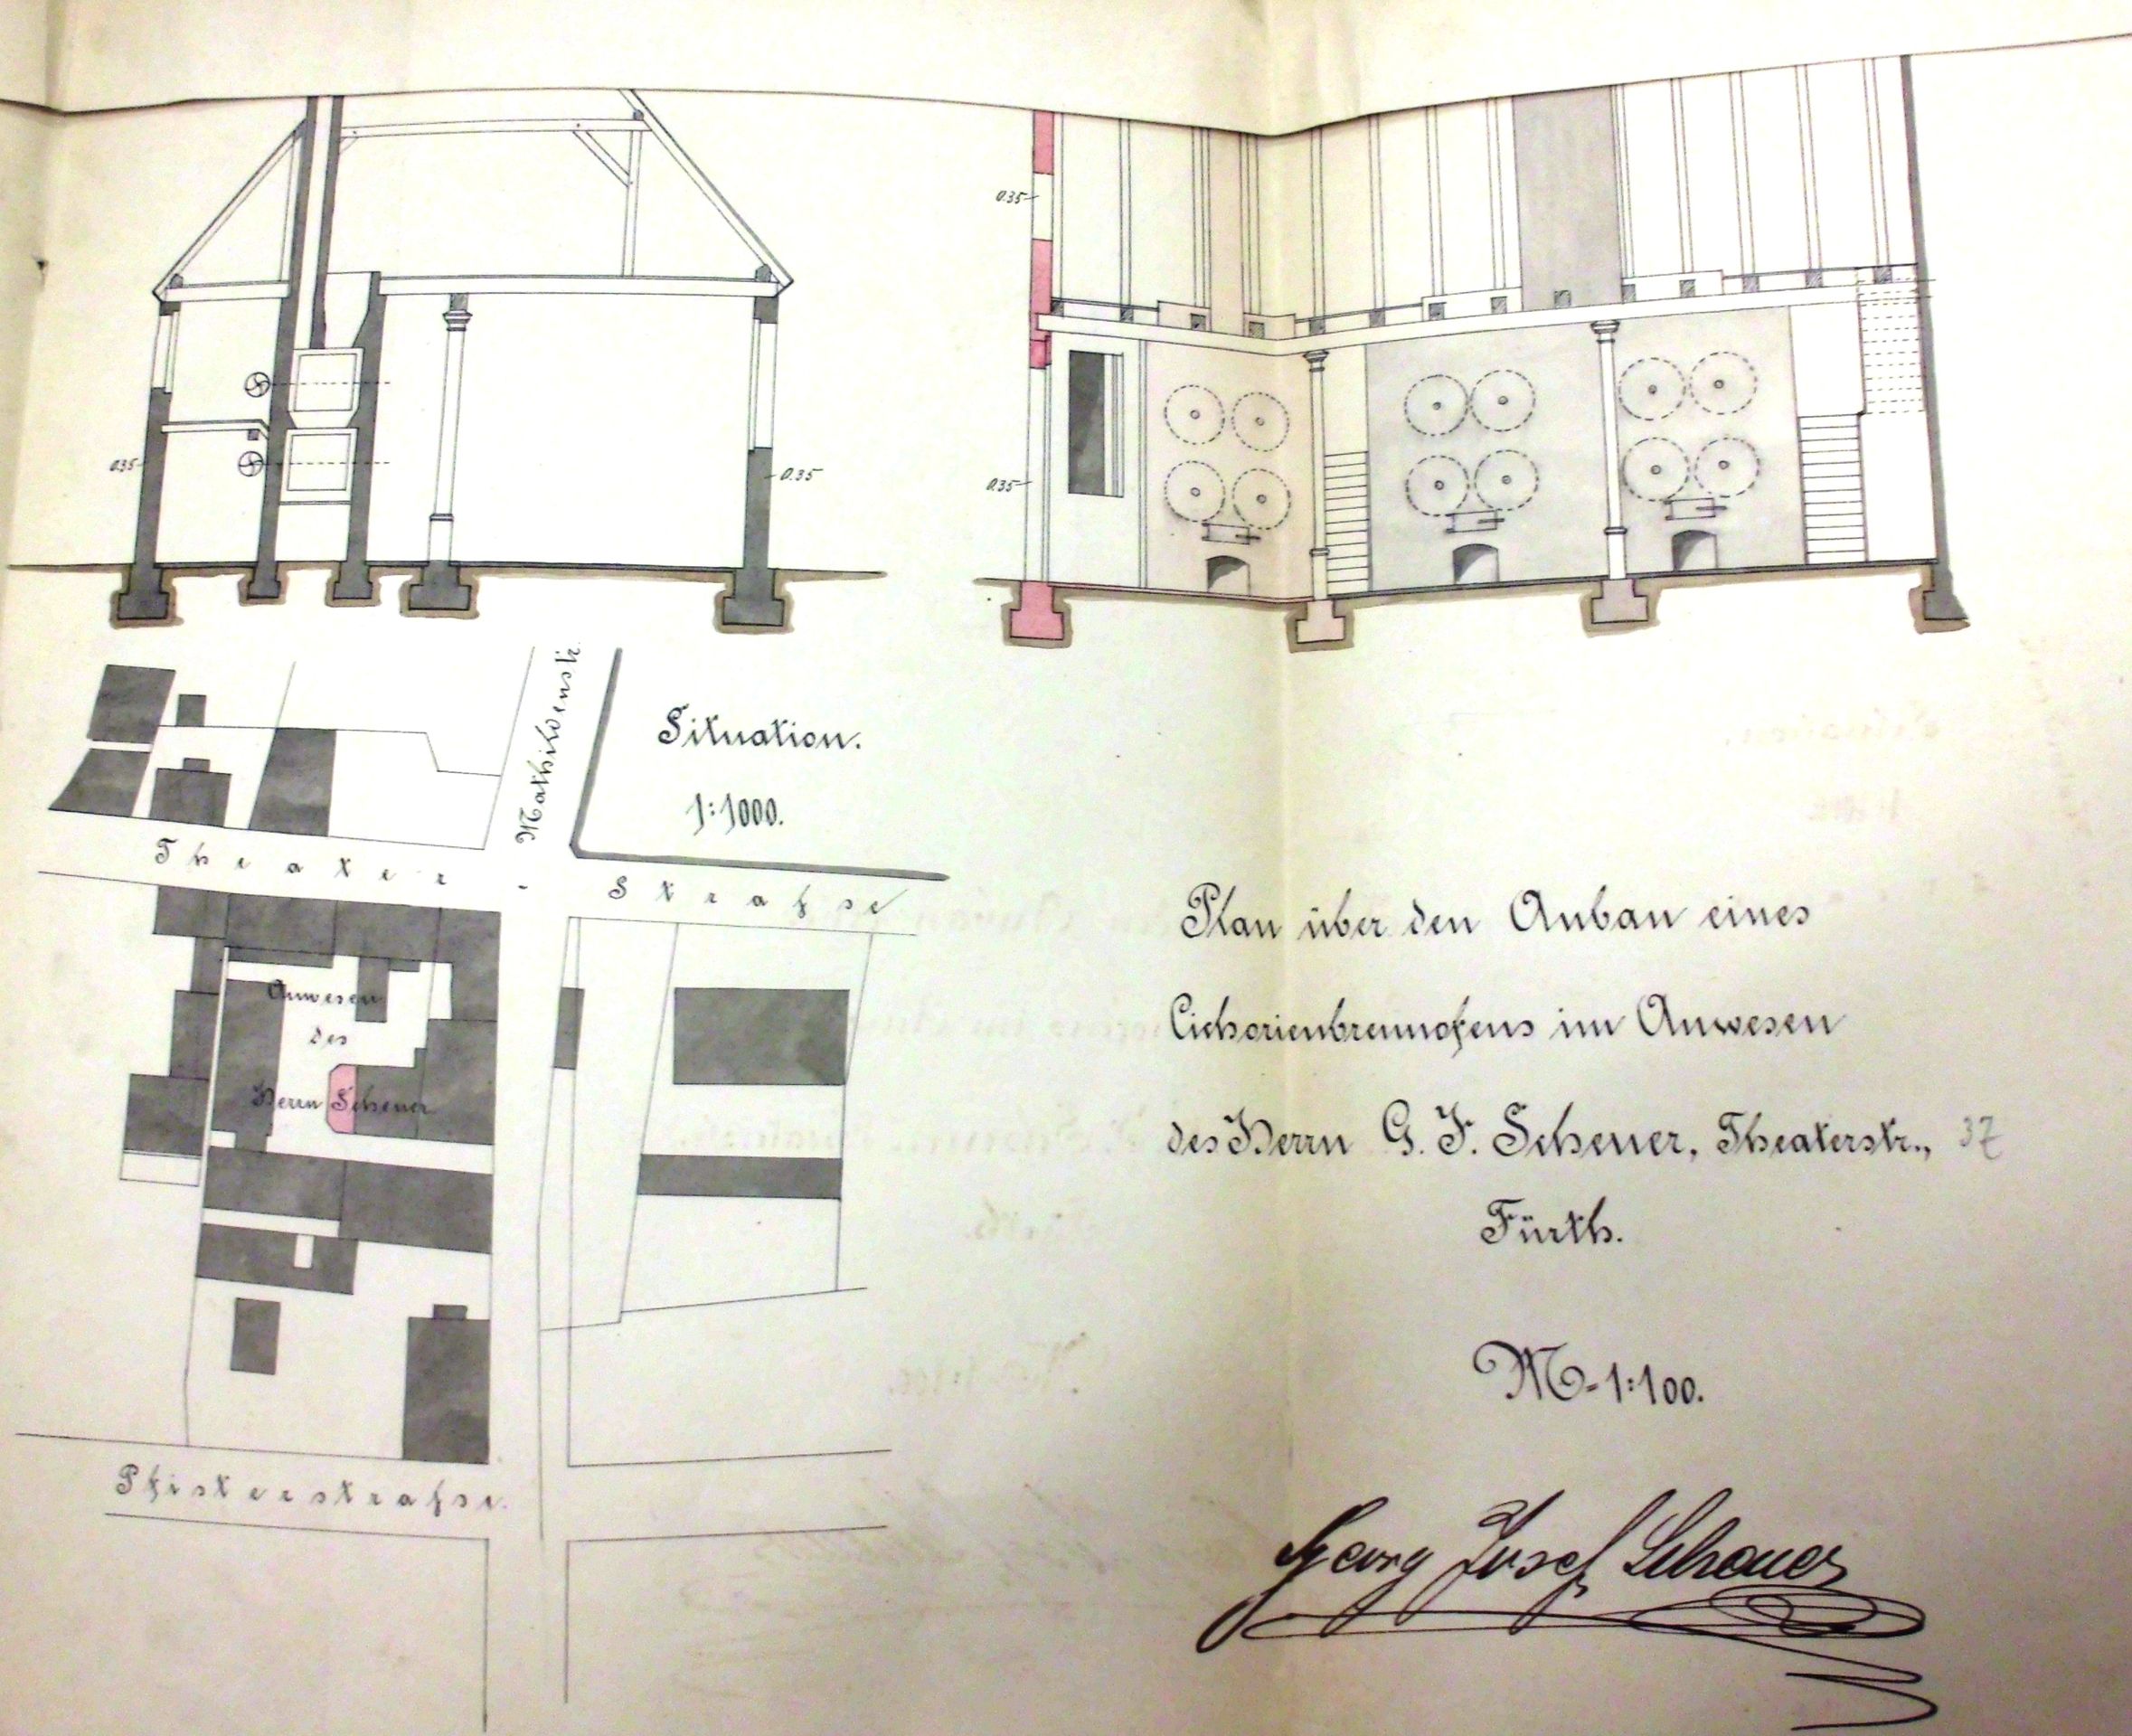 0.35
0.35
0.35
0.35
Mathildenstr.
Situation.
1:1000.
Theater - Strasse
Anwesen
des
Herrn Scheuer
Pfisterstrasse.
Plan über den Anbau eines
Cichorienbrennofens im Anwesen
des Herrn G. J. Scheuer, Theaterstr., 37
Fürth.
M-1:100.
Georg Josef Scheuer